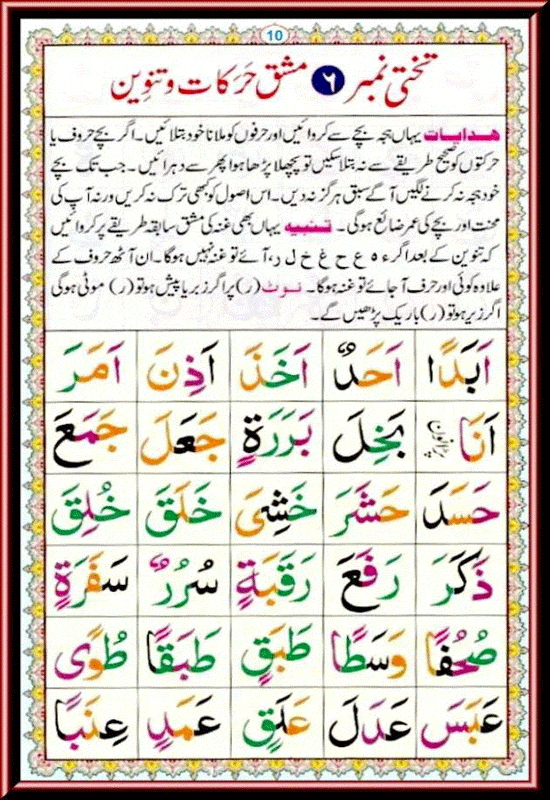 10
تختی نمبر ۶ مشق حرکات و تنوین
ھدایات یہاں ہجہ بچے سے کروائیں اور حرفوں کو ملانا خود بتلائیں۔ اگر بچے حروف یا
حرکتوں کو صحیح طریقے سے نہ بتلا سکیں تو پچھلا پڑھا ہوا پھر سے دہرائیں۔ جب تک بچے
خود ہجہ نہ کرنے لگیں آگے سبق ہرگز نہ دیں۔ اس اصول کو کبھی ترک نہ کریں ورنہ آپ کی
محنت اور بچے کی عمر ضائع ہوگی۔ تنبیہ یہاں بھی غنہ کی مشق سابقہ طریقے پر کروائیں
کہ تنوین کے بعد اگر ء ہ ع ح غ خ ل ر، آئے تو غنہ نہیں ہوگا۔ ان آٹھ حروف کے
علاوہ کوئی اور حرف آجائے تو غنہ ہوگا۔ نوٹ (ر) پر اگر زبر یا پیش ہو تو (ر) موٹی ہوگی
اگر زیر ہو تو (ر) باریک پڑھیں گے۔
اَبَدًا اَحَدٌ اَخَذَ اَذِنَ اَمَرَ
اَنَا بَخِلَ بَرَرَةٍ جَعَلَ جَمَعَ
حَسَدَ حَشَرَ خَشِیَ خَلَقَ خُلِقَ
ذَکَرَ رَفَعَ رَقَبَةٍ سُرُرٌ سَفَرَةٍ
صُحُفًا وَسَطًا طَبَقٍ طَبَقًا طُوًی
عَبَسَ عَدَلَ عَلَقٍ عَمَدٍ عِنَبًا